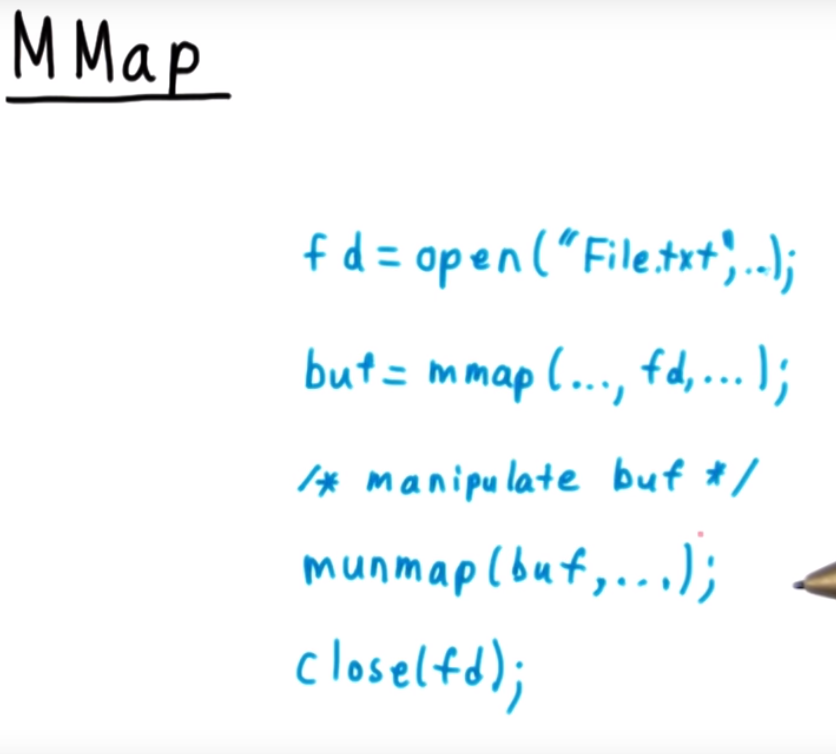 MMap
fd = open("File.txt", ...);
buf = mmap(..., fd, ...);
/* manipulate buf */
munmap(buf, ...);
close(fd);